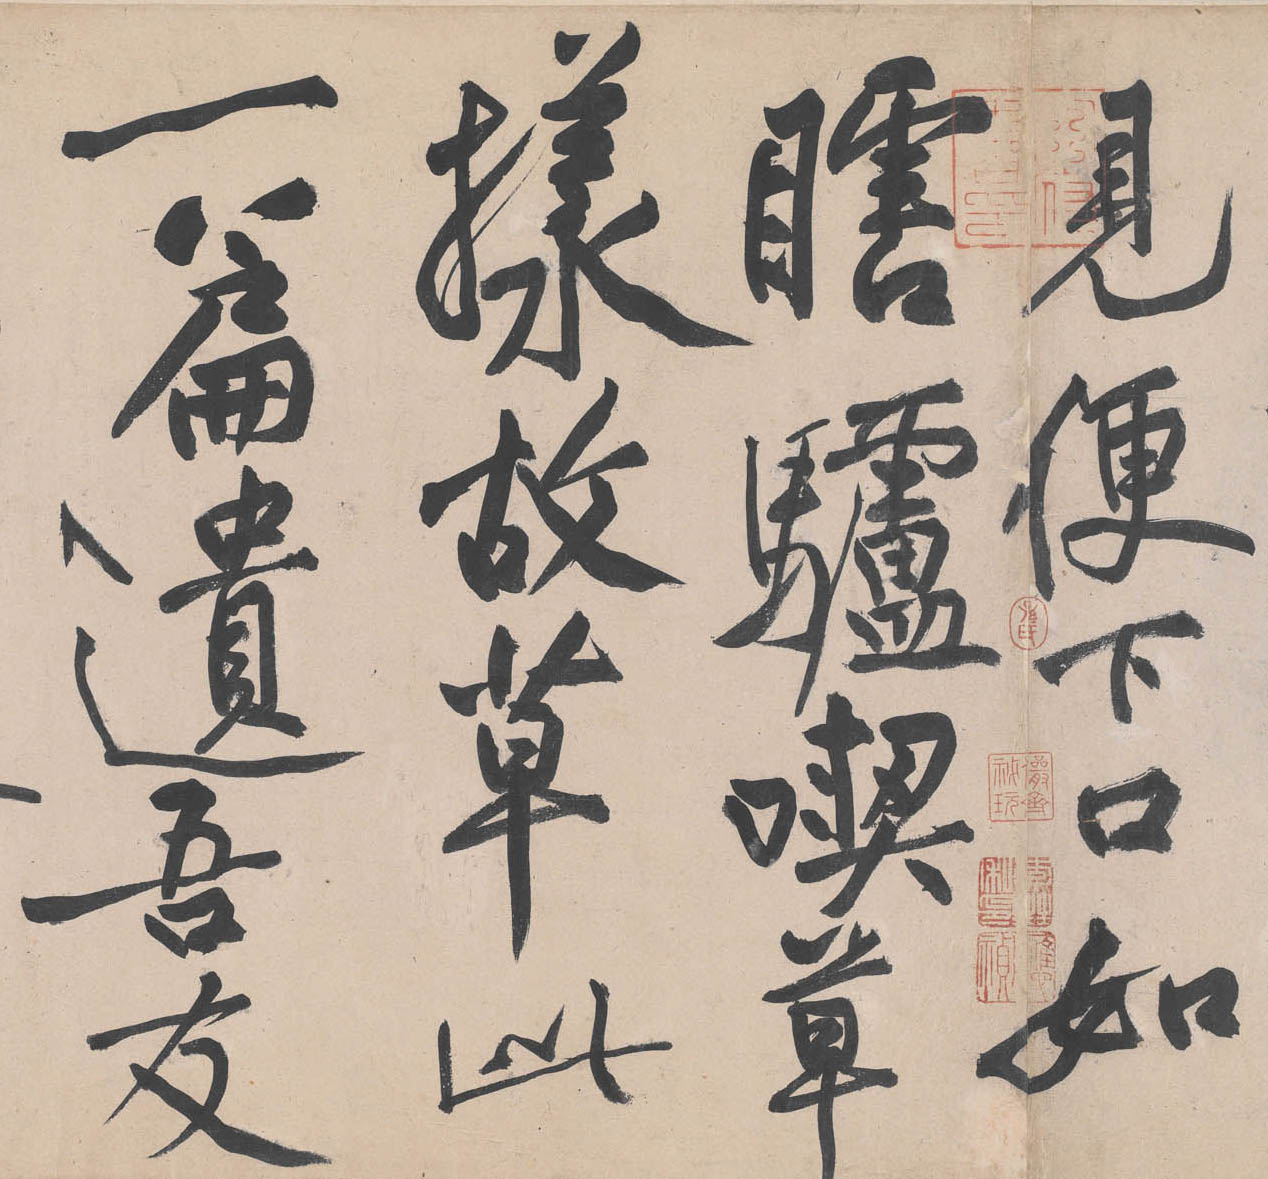 見便下口如
瞎驢喫草
樣故草此
一篇遺吾友